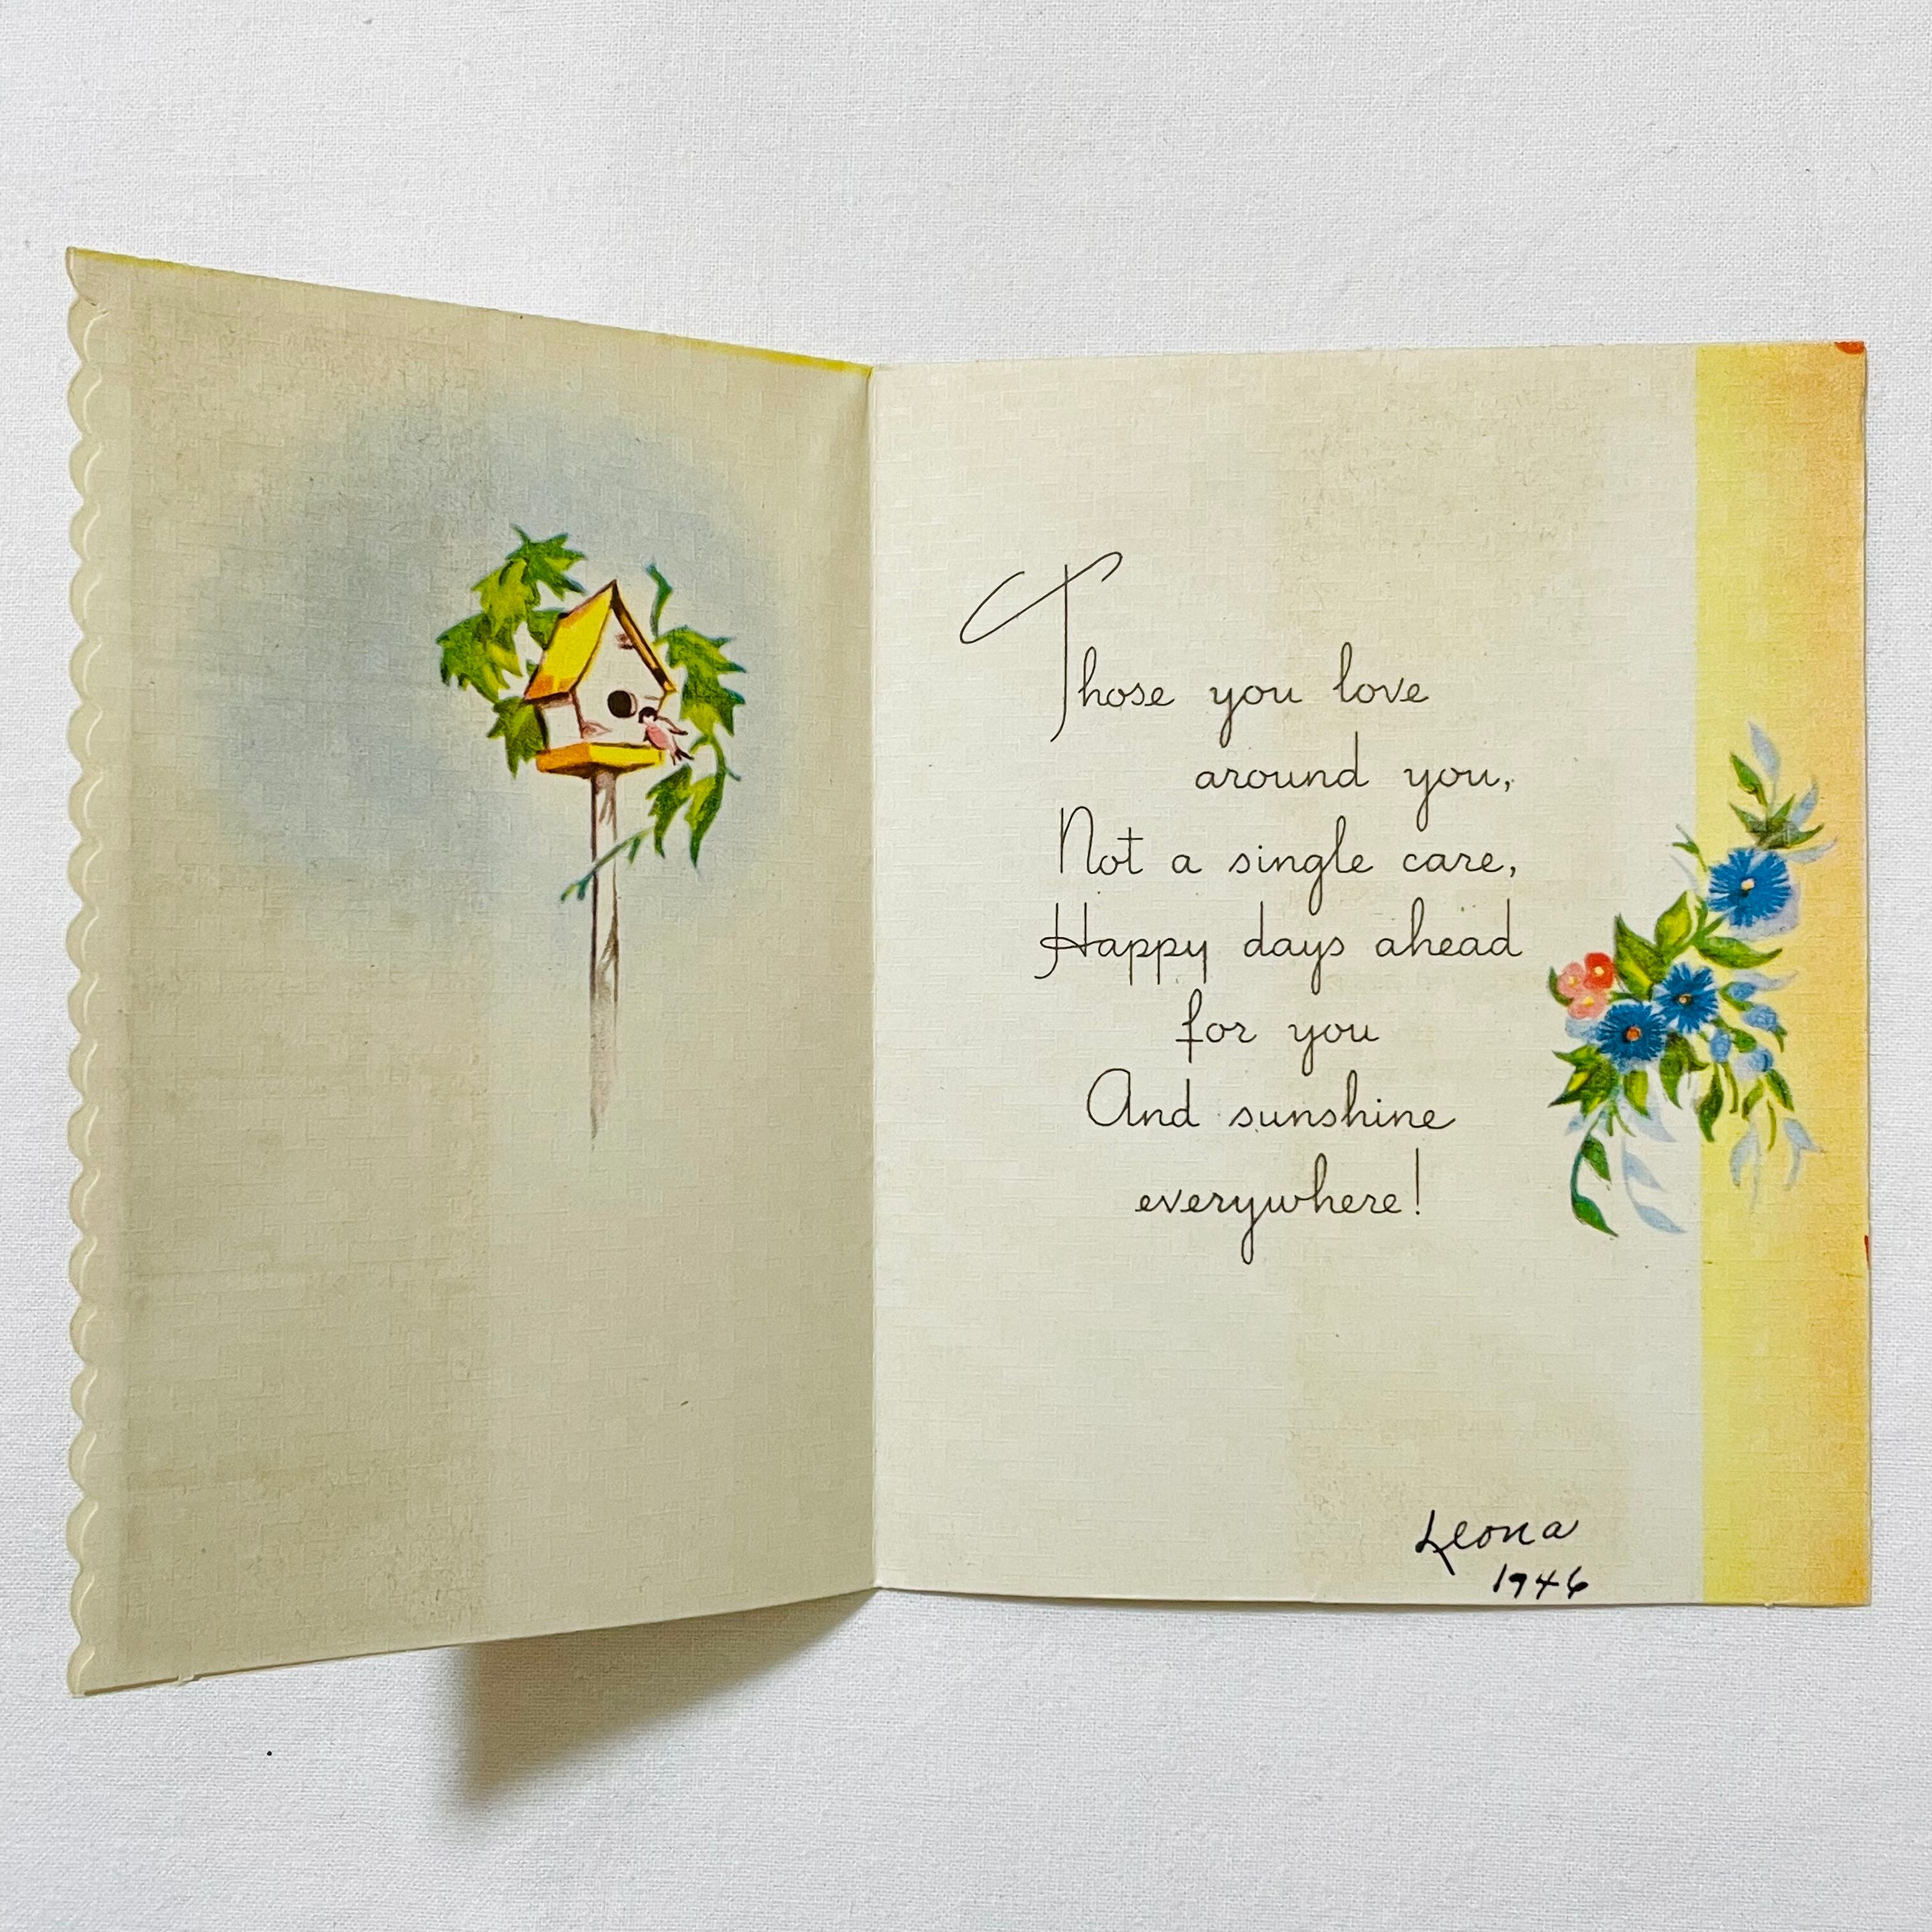 Those you love
around you,
Not a single care,
Happy days ahead
for you
And sunshine
everywhere!
Leona
1946